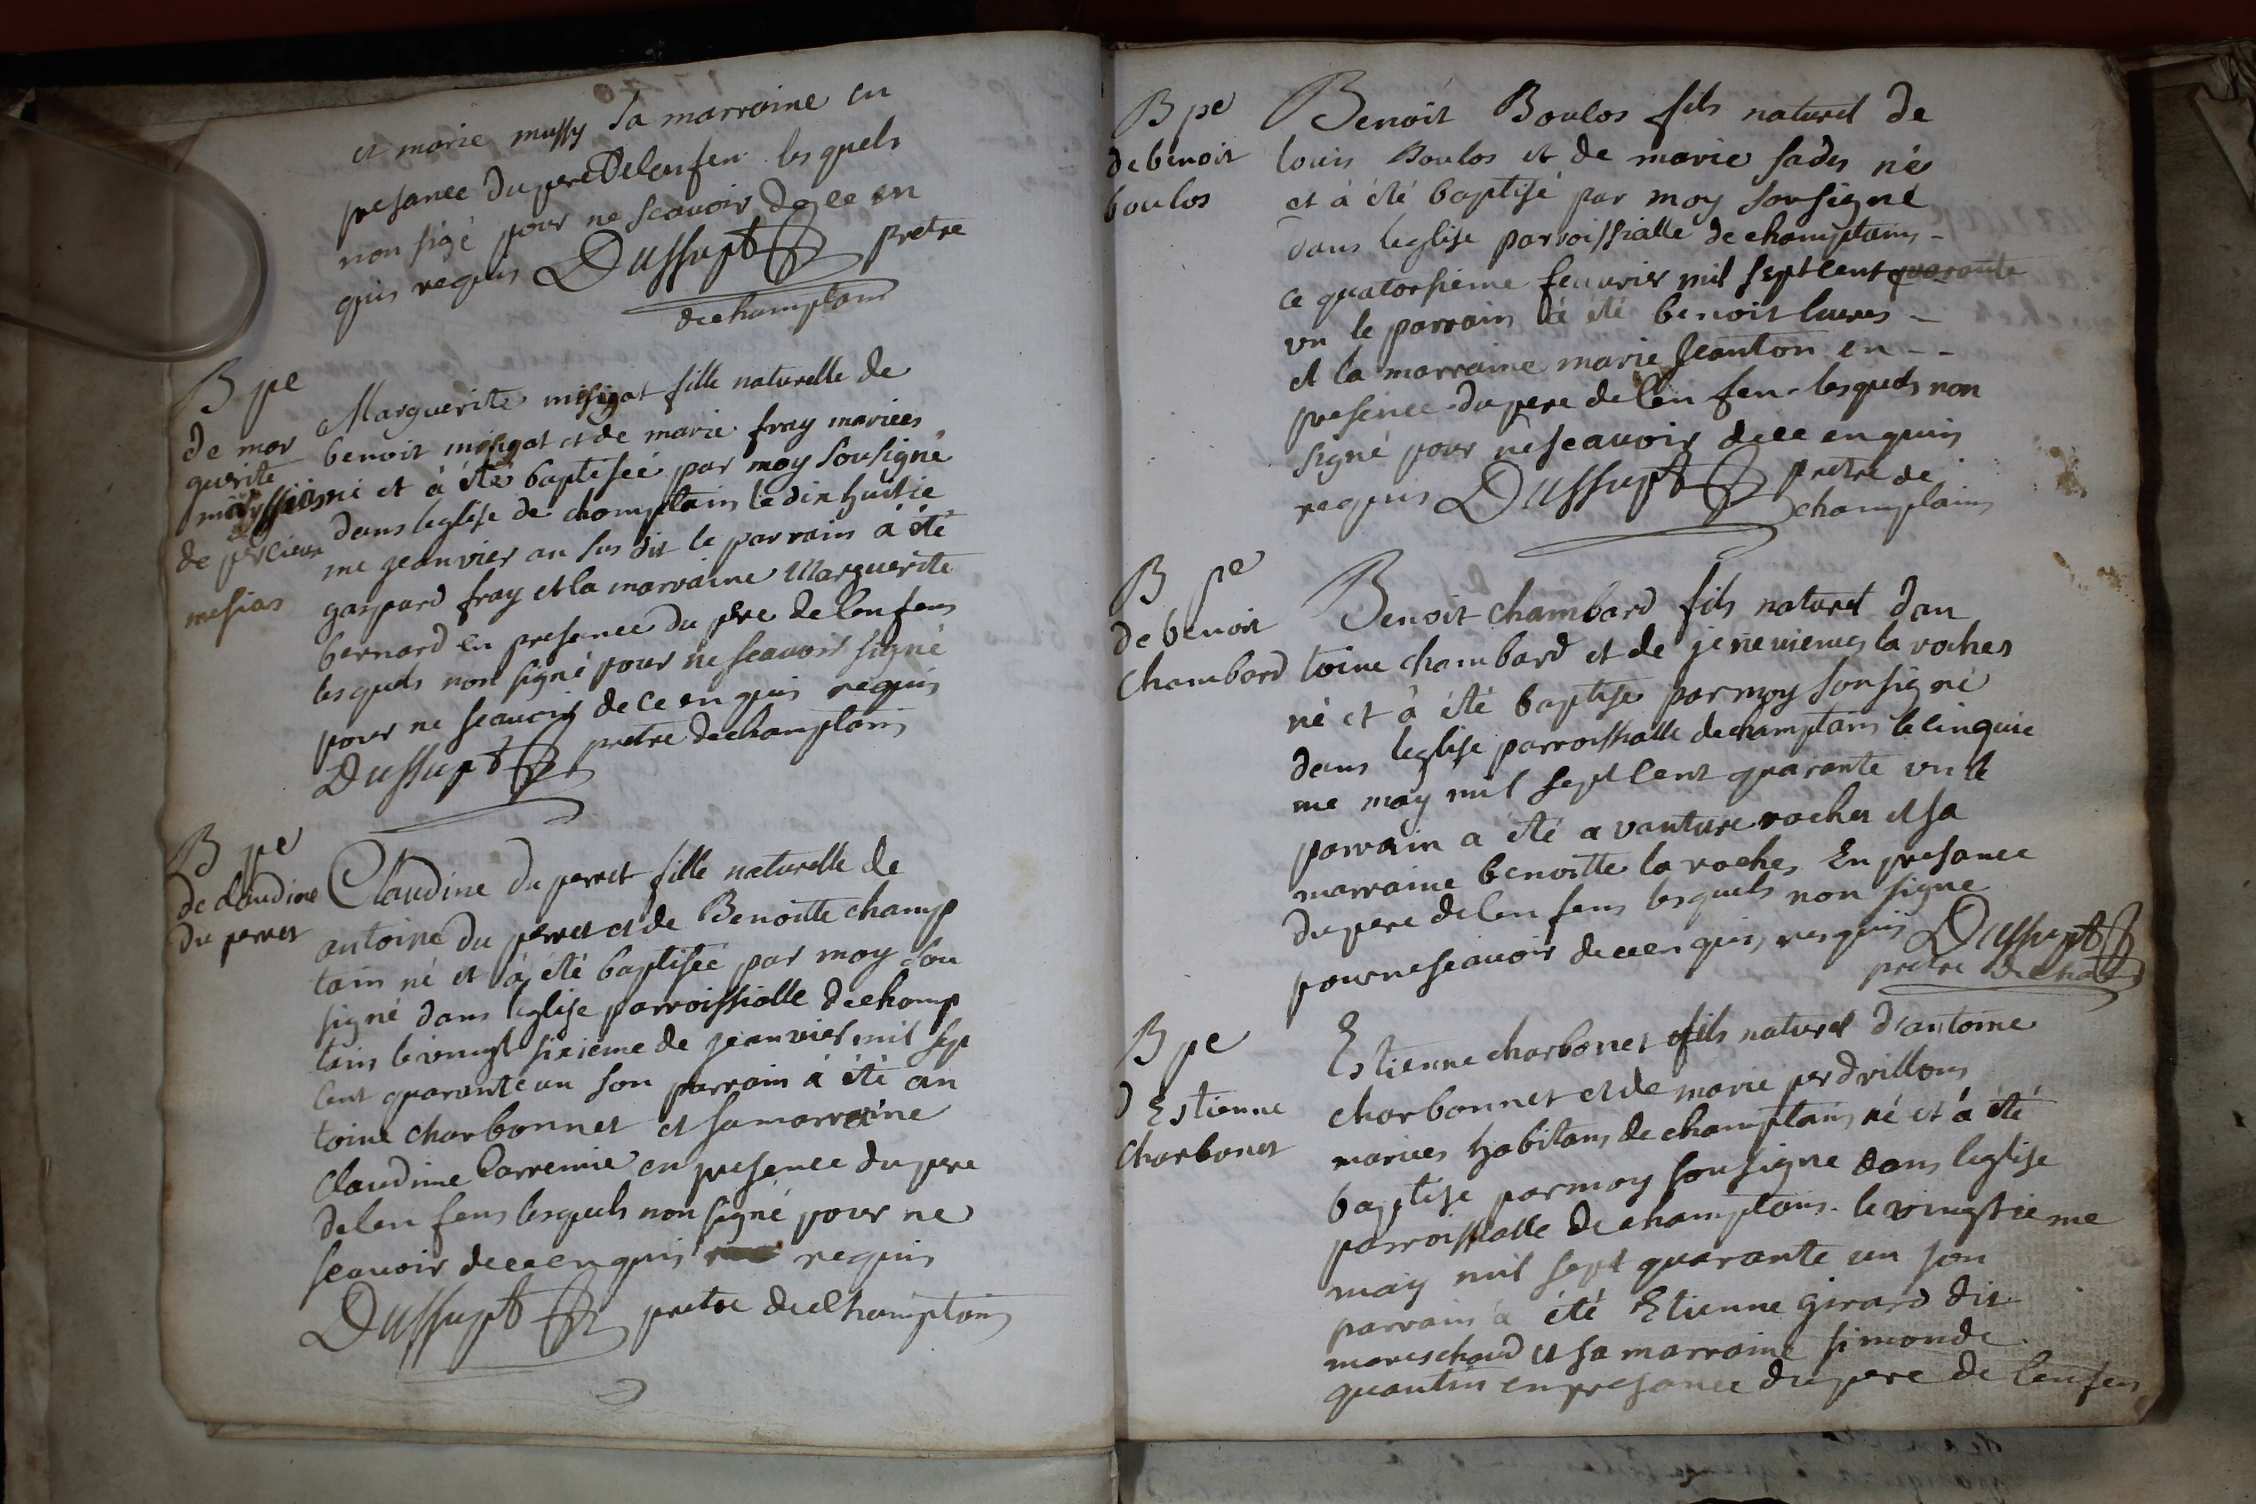 et marie mussy sa marraine en
presance du pere De lenfen lesquels
non sigé pour ne scavoir de ce en
quis requis Dussupt pretre
de champtain
B pe
de mar
guerite
de percieux
mesias
Marguerite misigat fille naturelle de
benoit misigat et de marie fray mariees
ni et à été baptiseé par moy sousigné
dans leglise de champtain le dix huitie
me jeanvier an sus dit le parrain à été
gaspard fray et la marraine Marguerite
bernard en presence du pere de lenfens
lesquels non signé pour ne scavoir signé
pour ne scavoir de ce en quis requis
Dussupt pretre de champtain
B pe
de claudine
du perret
Claudine du perret fille naturelle de
antoine du perret et de Benoitte champ
tain né et à été baptiseé par moy sou
signé dans leglise parroissialle de champ
tain le vingt sixieme de jeanvier mil sep
cent quarante un son parrain à été an
toine charbonnet et sa marraine
claudine Carremie en presence du pere
de lenfens lesquels non signé pour ne
scavoir de ce en quis requis
Dussupt pretre de champtain
B pe
de benoit
boulos
Benoit Boulos fils naturel de
louis Boulos et de marie sades né
et à été baptisé par moy sousigné
dans leglise parroissialle de champtain -
ce quatorsieme feuvrier mil sept cent quarante
un le parrain à été benoit -
et la marraine marie Jeanton en - -
presence du pere de len fen lesquels non
signé pour ne scavoir de ce en quis
requis Dussupt pretre de
champtain
B pe
de benoit
chambard
Benoit chambard fils naturel dan
toine chambard et de jenevieves la roches
né et à été baptise par moy sousigné
dans leglise parroissialle de champtain le cinquie
me may mil sept cent quarante un le
parrain a été a vanture rocher et sa
marraine benoitte la roches En presance
du pere de lenfens lesquels non signe
pour ne scavoir de ce en quis requis Dussupt
pretre de cha
B pe
d Estienne
charbonet
Estienne charbonet fils naturel d'antoine
charbonnet et de marie perdrillons
mariees habitans de champtain né et à été
baptise par moy sousigne dans leglise
parroissialle de champtain le vingtieme
may mil sept quarante un son
parrain à été Etienne girard dit
mareschaud et sa marraine simonde
quantin en presance du pere de lenfens